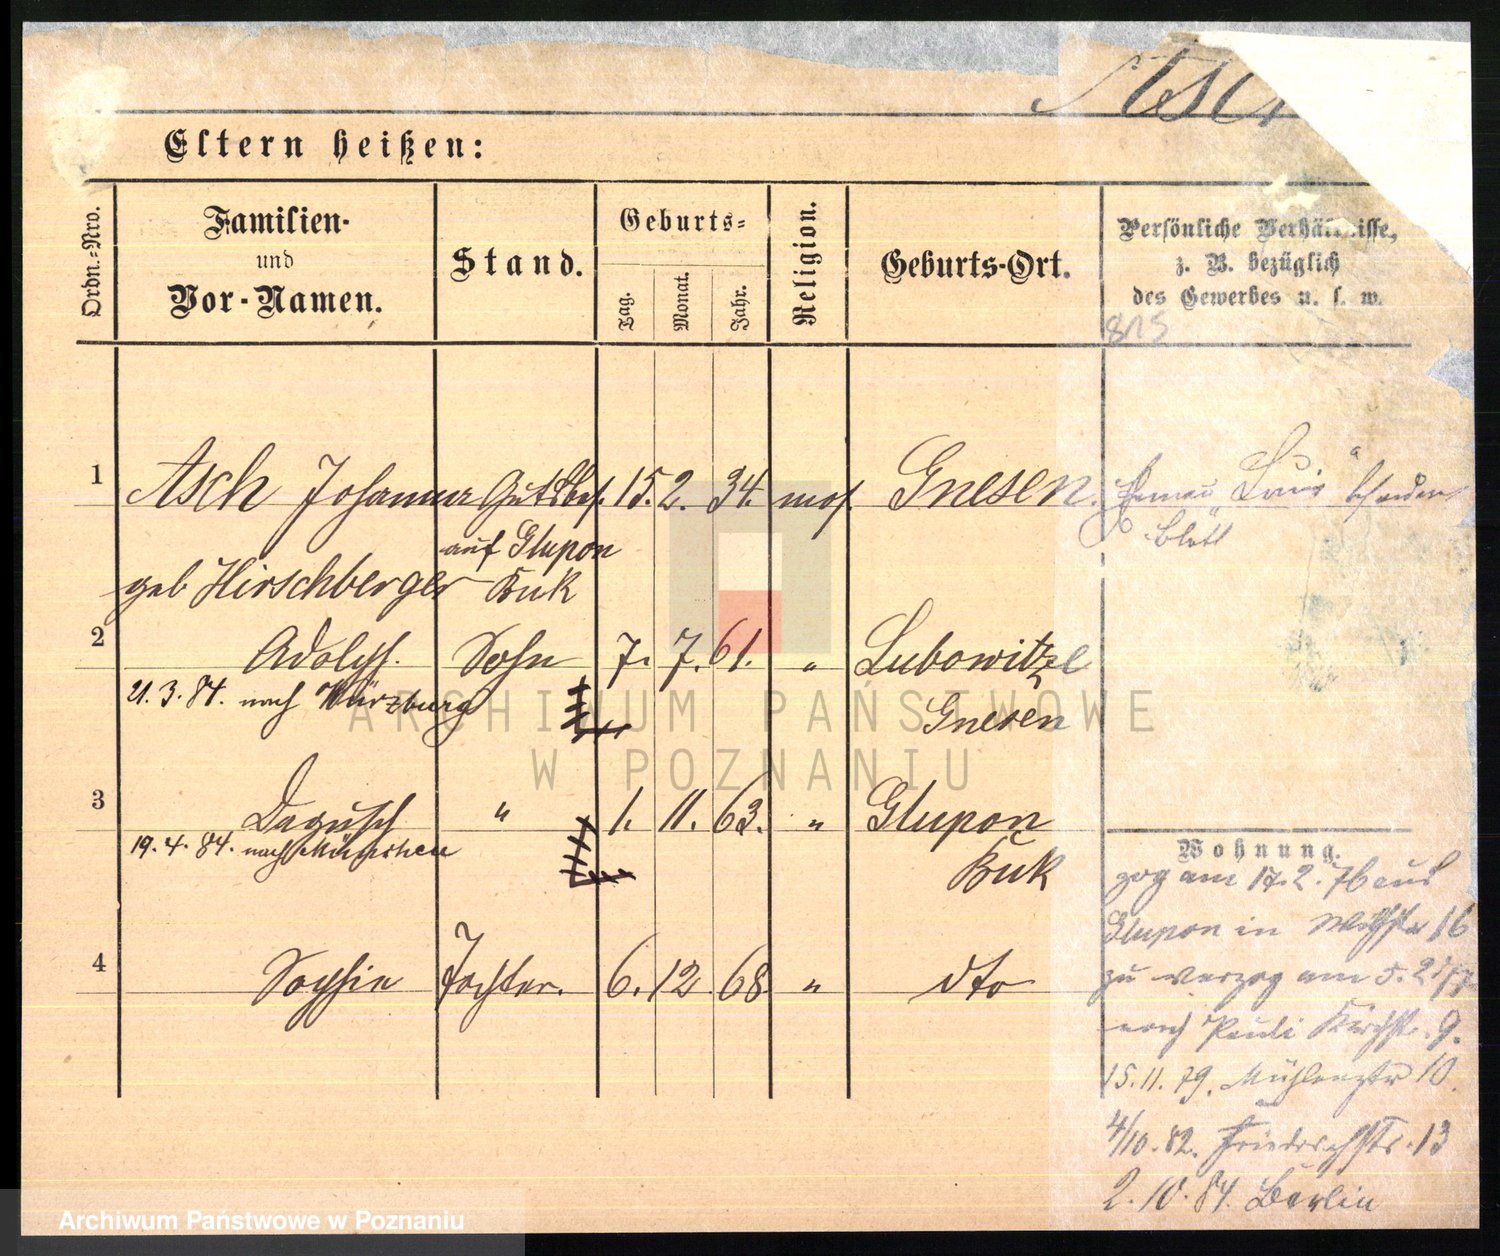 Asch
Eltern heißen:
Ordn.-Nro.
Familien-
und
Vor-Namen.
Stand.
Geburts-
Tag.
Monat.
Jahr.
Religion.
Geburts-Ort.
Persönliche Verhältnisse,
z. B. bezüglich
des Gewerbes u. s. w.
1 Asch Johanna Gutsbes. 15. 2. 34. mos. Gnesen.
auf Glupon
geb Hirschberger Buk
blatt
2 Adolph. Sohn 7. 7. 61. " Lubowitze
21.3.84. nach Würzburg Gnesen
3 Dagusch " 1. 11. 63. " Glupon
19.4.84. nach München Buk
4 Sophie Tochter. 6. 12. 68 " dto
Wohnung.
zog am 17.2.76 aus
Glupon in 16
zu verzog am 5.2.77
nach Pauli Kirchstr. 9.
15.11.79. Mühlenstr 10.
4/10.82. Friedrichstr. 13
2.10.84. Berlin
ARCHIWUM PAŃSTWOWE
W POZNANIU
Archiwum Państwowe w Poznaniu